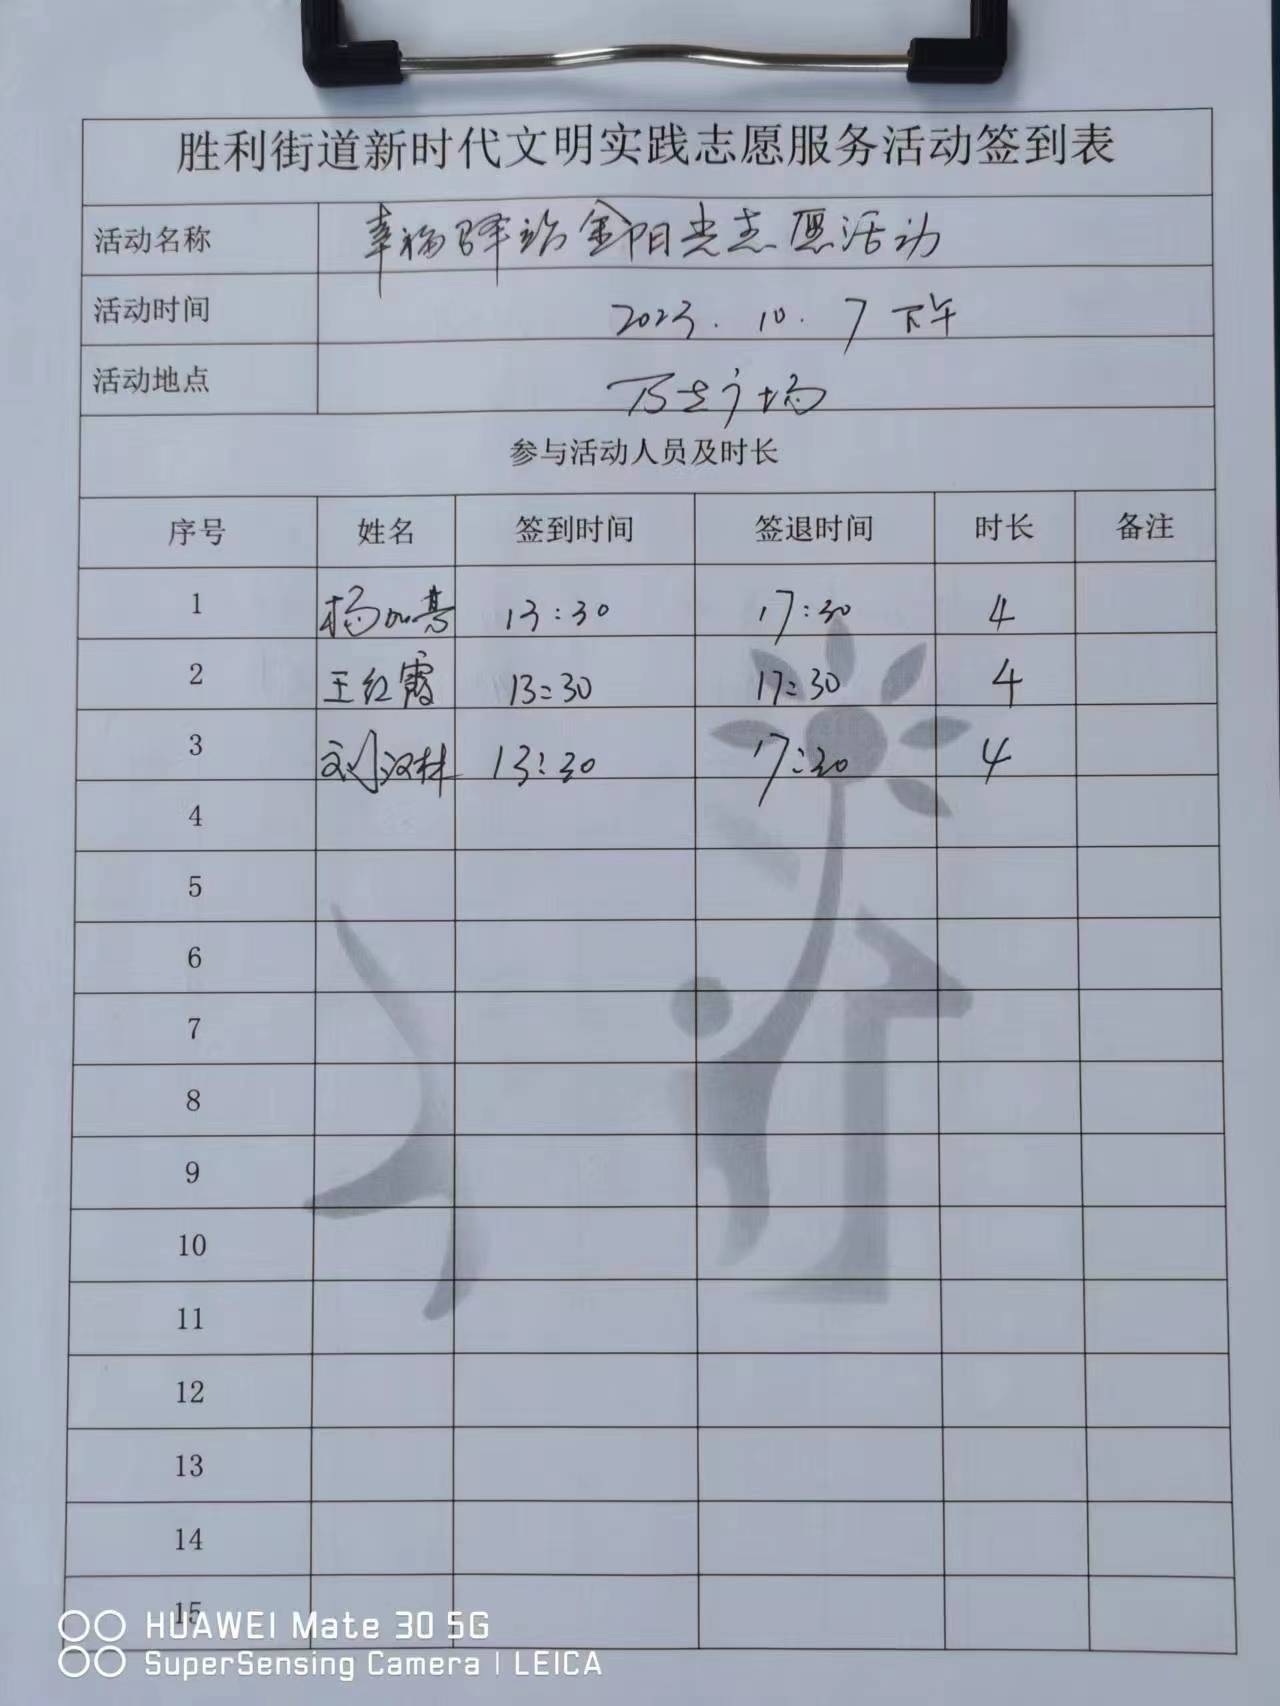 胜利街道新时代文明实践志愿服务活动签到表
活动名称 幸福驿站金阳光志愿活动
活动时间 2023.10.7 下午
活动地点 万达广场
参与活动人员及时长
序号 姓名 签到时间 签退时间 时长 备注
1 杨 13:30 17:30 4
2 王红霞 13:30 17:30 4
3 刘汉林 13:30 17:30 4
4
5
6
7
8
9
10
11
12
13
14
15
HUAWEI Mate 30 5G
SuperSensing Camera | LEICA